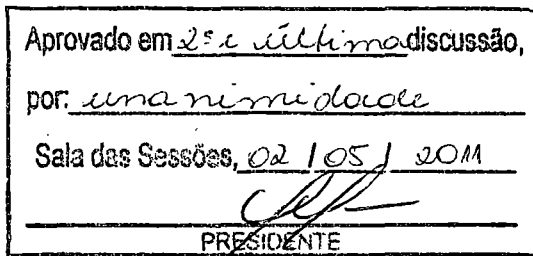 Aprovado em 2ª e última discussão,
por: unanimidade
Sala das Sessões, 02 / 05 / 2011
PRESIDENTE